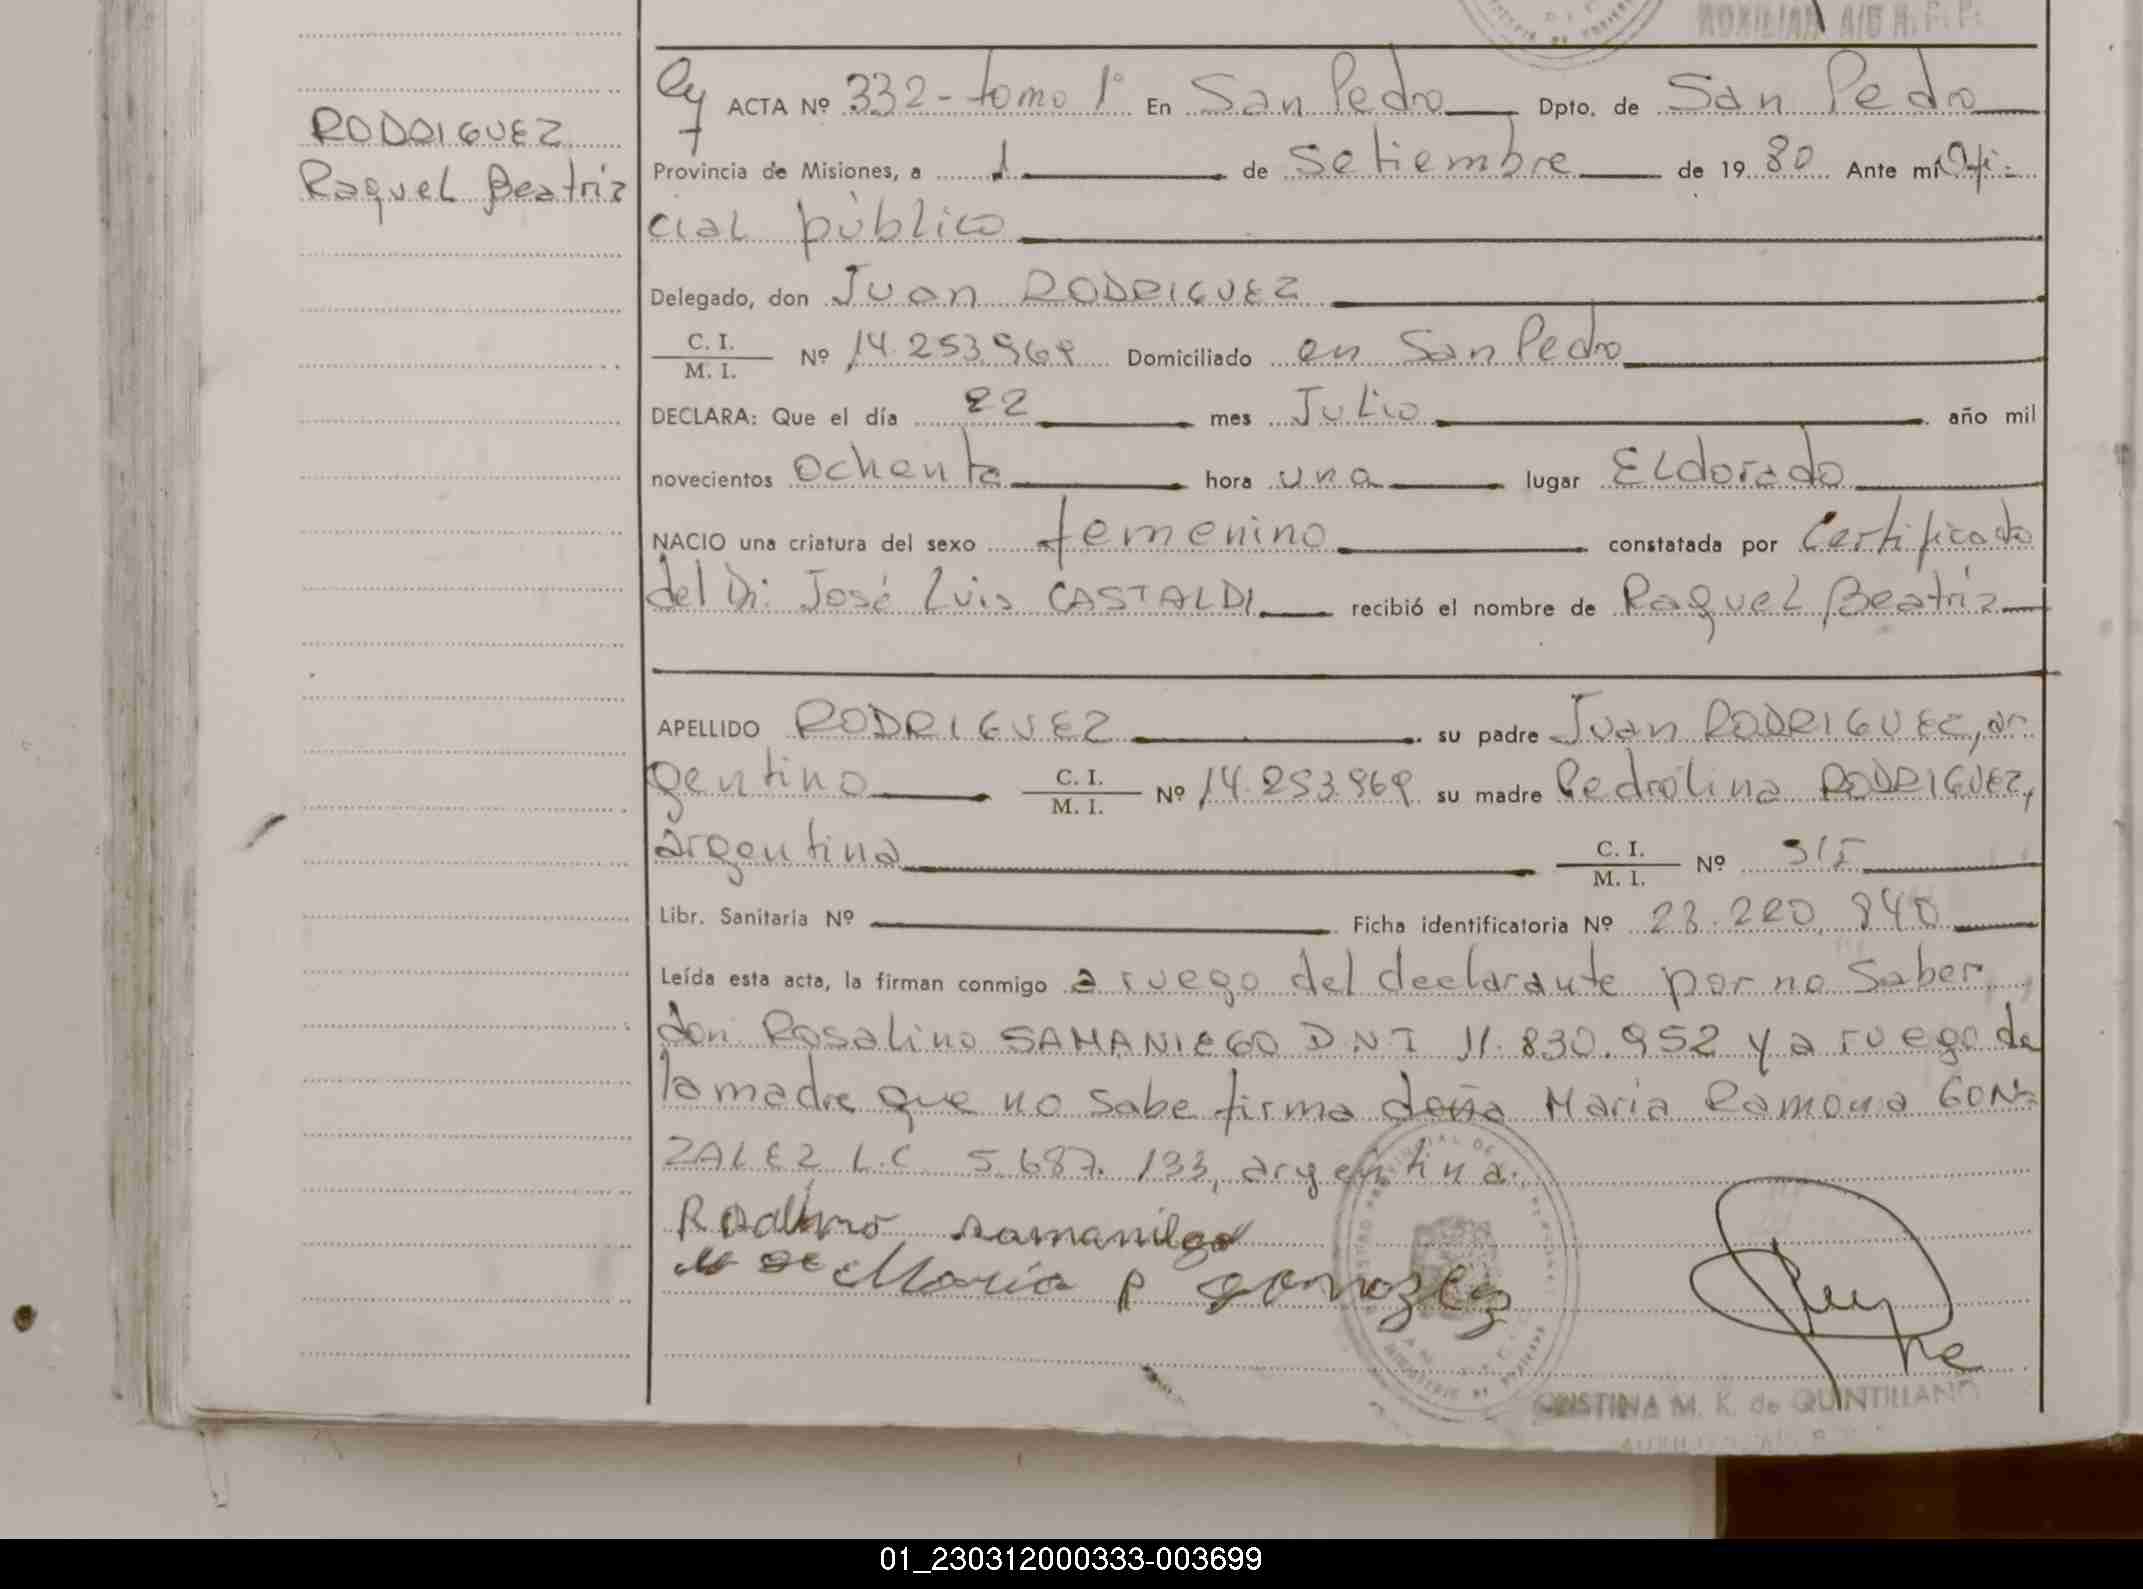 AUXILIAR A/C R.P.P.
RODRIGUEZ
Raquel Beatriz
ACTA Nº 332 - tomo 1° En San Pedro Dpto. de San Pedro
Provincia de Misiones, a 1 de Setiembre de 1980 Ante mí Ofi-
cial público
Delegado, don Juan RODRIGUEZ
C. I.
M. I. Nº 14.253.969 Domiciliado en San Pedro
DECLARA: Que el día 22 mes Julio año mil
novecientos ochenta hora una lugar Eldorado
NACIO una criatura del sexo femenino constatada por Certificado
del Dr. José Luis CASTALDI recibió el nombre de Raquel Beatriz
APELLIDO RODRIGUEZ su padre Juan RODRIGUEZ, ar
gentino C. I. M. I. Nº 14.253.969 su madre Pedrolina RODRIGUEZ,
argentina C. I. M. I. Nº
Libr. Sanitaria Nº Ficha identificatoria Nº 28.220.840
Leída esta acta, la firman conmigo a ruego del declarante por no saber,
don Rosalino SAMANIEGO D N I 11.830.952 y a ruego de
la madre que no sabe firma doña Maria Ramona GON-
ZALEZ L.C. 5.687.133, argentina.
Rosalino samaniego
Maria R gonzlez
CRISTINA M. K. de QUINTILLANO
01_230312000333-003699